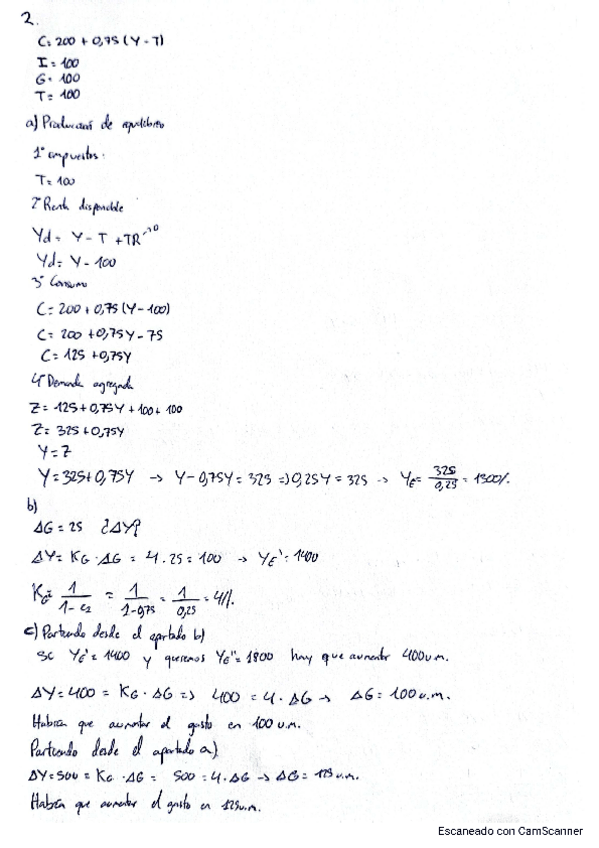 2.
C = 200 + 0,75 (Y - T)
I = 100
G = 100
T = 100
a) Producción de equilibrio
1º impuestos:
T = 100
2º Renta disponible
Yd = Y - T + TR → 0
Yd = Y - 100
3º Consumo
C = 200 + 0,75 (Y - 100)
C = 200 + 0,75Y - 75
C = 125 + 0,75Y
4º Demanda agregada
Z = 125 + 0,75Y + 100 + 100
Z = 325 + 0,75Y
Y = Z
Y = 325 + 0,75Y → Y - 0,75Y = 325 => 0,25Y = 325 → YE = 325/0,25 = 1300//.
b)
ΔG = 25 ¿ΔY?
ΔY = KG · ΔG = 4 · 25 = 100 → YE' = 1400
KG = 1/1-c2 = 1/1-0,75 = 1/0,25 = 4//.
c) Partiendo desde el apartado b)
Si YE' = 1400 y queremos YE'' = 1800 hay que aumentar 400 u.m.
ΔY = 400 = KG · ΔG => 400 = 4 · ΔG → ΔG = 100 u.m.
Habría que aumentar el gasto en 100 u.m.
Partiendo desde el apartado a)
ΔY = 500 = KG · ΔG = 500 = 4 · ΔG → ΔG = 125 u.m.
Habría que aumentar el gasto en 125 u.m.
Escaneado con CamScanner